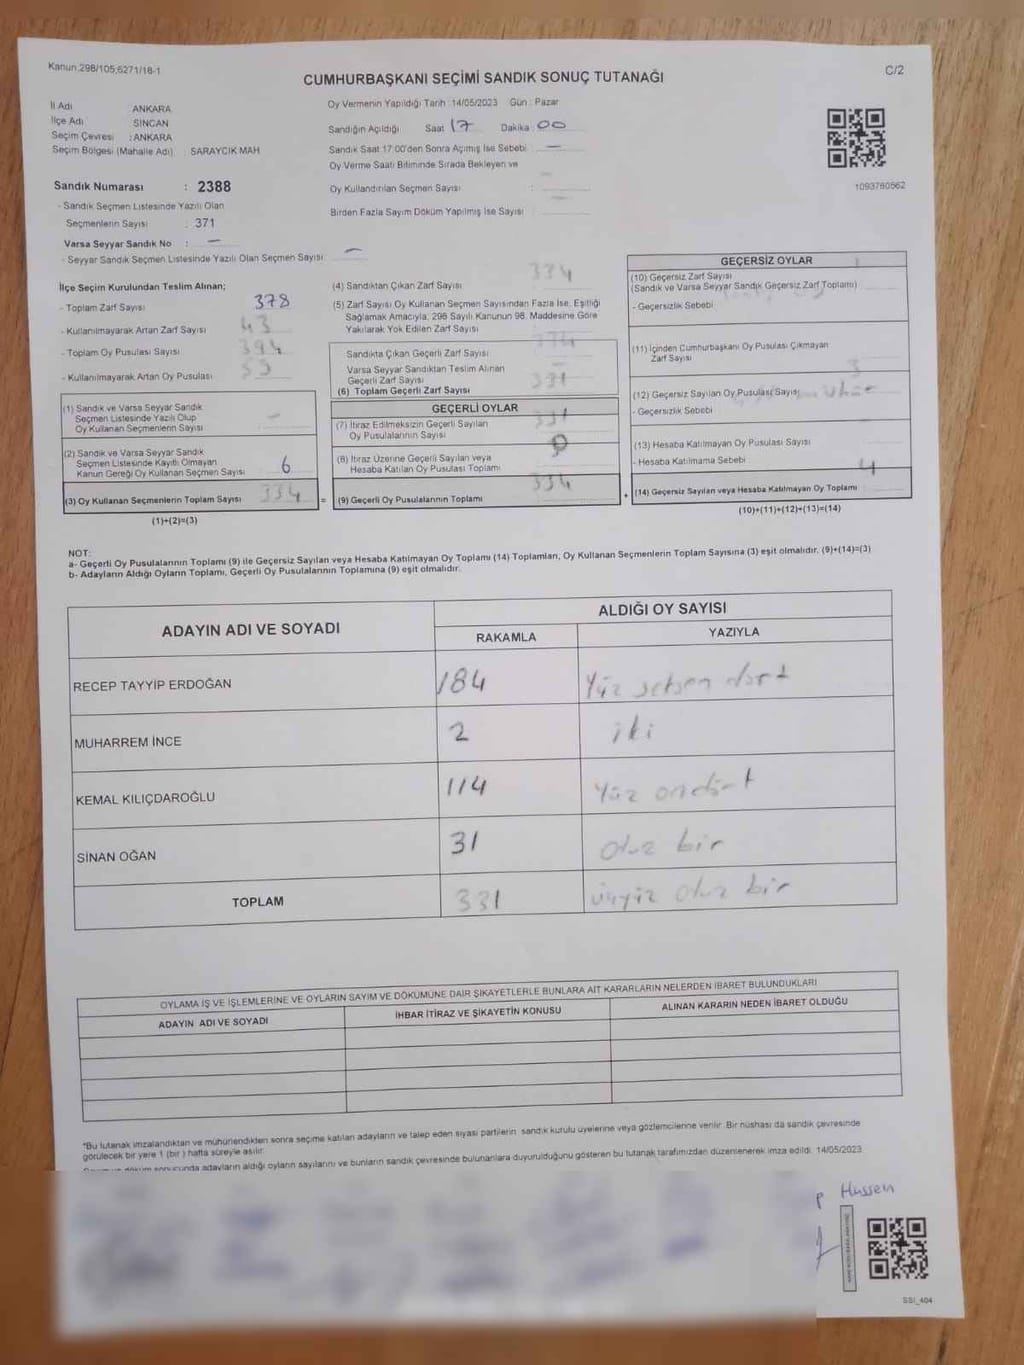 Kanun,298/105,6271/18-1
C/2
CUMHURBAŞKANI SEÇİMİ SANDIK SONUÇ TUTANAĞI
İl Adı ANKARA
İlçe Adı SİNCAN
Seçim Çevresi : ANKARA
Seçim Bölgesi (Mahalle Adı) : SARAYCIK MAH
Oy Vermenin Yapıldığı Tarih : 14/05/2023 Gün : Pazar
Sandığın Açıldığı Saat 17 Dakika : 00
Sandık Saat 17:00'den Sonra Açımış İse Sebebi : —
Oy Verme Saati Bitiminde Sırada Bekleyen ve
Oy Kullandırılan Seçmen Sayısı :
Birden Fazla Sayım Döküm Yapılmış İse Sayısı :
1093760562
Sandık Numarası : 2388
- Sandık Seçmen Listesinde Yazılı Olan
Seçmenlerin Sayısı : 371
Varsa Seyyar Sandık No : —
- Seyyar Sandık Seçmen Listesinde Yazılı Olan Seçmen Sayısı: —
İlçe Seçim Kurulundan Teslim Alınan;
- Toplam Zarf Sayısı 378
- Kullanılmayarak Artan Zarf Sayısı 43
- Toplam Oy Pusulası Sayısı 394
- Kullanılmayarak Artan Oy Pusulası
(1) Sandık ve Varsa Seyyar Sandık
Seçmen Listesinde Yazılı Olup
Oy Kullanan Seçmenlerin Sayısı
(2) Sandık ve Varsa Seyyar Sandık
Seçmen Listesinde Kayıtlı Olmayan
Kanun Gereği Oy Kullanan Seçmen Sayısı 6
(3) Oy Kullanan Seçmenlerin Toplam Sayısı 334
(1)+(2)=(3)
(4) Sandıktan Çıkan Zarf Sayısı 334
(5) Zarf Sayısı Oy Kullanan Seçmen Sayısından Fazla İse, Eşitliği
Sağlamak Amacıyla, 298 Sayılı Kanunun 98. Maddesine Göre
Yakılarak Yok Edilen Zarf Sayısı
Sandıkta Çıkan Geçerli Zarf Sayısı 334
Varsa Seyyar Sandıktan Teslim Alınan
Geçerli Zarf Sayısı
(6) Toplam Geçerli Zarf Sayısı 331
GEÇERLİ OYLAR
(7) İtiraz Edilmeksizin Geçerli Sayılan
Oy Pusulalarının Sayısı 331
(8) İtiraz Üzerine Geçerli Sayılan veya
Hesaba Katılan Oy Pusulası Toplamı
(9) Geçerli Oy Pusulalarının Toplamı 334
GEÇERSİZ OYLAR
(10) Geçersiz Zarf Sayısı
(Sandık ve Varsa Seyyar Sandık Geçersiz Zarf Toplamı)
- Geçersizlik Sebebi
(11) İçinden Cumhurbaşkanı Oy Pusulası Çıkmayan
Zarf Sayısı
(12) Geçersiz Sayılan Oy Pusulası Sayısı 3
- Geçersizlik Sebebi
(13) Hesaba Katılmayan Oy Pusulası Sayısı
- Hesaba Katılmama Sebebi
(14) Geçersiz Sayılan veya Hesaba Katılmayan Oy Toplamı 4
(10)+(11)+(12)+(13)=(14)
NOT:
a- Geçerli Oy Pusulalarının Toplamı (9) ile Geçersiz Sayılan veya Hesaba Katılmayan Oy Toplamı (14) Toplamları, Oy Kullanan Seçmenlerin Toplam Sayısına (3) eşit olmalıdır. (9)+(14)=(3)
b- Adayların Aldığı Oyların Toplamı, Geçerli Oy Pusulalarının Toplamına (9) eşit olmalıdır.
ADAYIN ADI VE SOYADI
ALDIĞI OY SAYISI
RAKAMLA YAZIYLA
RECEP TAYYİP ERDOĞAN 184 Yüz seksen dört
MUHARREM İNCE 2 iki
KEMAL KILIÇDAROĞLU 114 Yüz ondört
SİNAN OĞAN 31 otuz bir
TOPLAM 331 üçyüz otuz bir
OYLAMA İŞ VE İŞLEMLERİNE VE OYLARIN SAYIM VE DÖKÜMÜNE DAİR ŞİKAYETLERLE BUNLARA AİT KARARLARIN NELERDEN İBARET BULUNDUKLARI
ADAYIN ADI VE SOYADI İHBAR İTİRAZ VE ŞİKAYETİN KONUSU ALINAN KARARIN NEDEN İBARET OLDUĞU
*Bu tutanak imzalandıktan ve mühürlendikten sonra seçime katılan adayların ve talep eden siyasi partilerin sandık kurulu üyelerine veya gözlemcilerine verilir. Bir nüshası da sandık çevresinde
görülecek bir yere 1 (bir) hafta süreyle asılır.
sonucunda adayların aldığı oyların sayılarını ve bunların sandık çevresinde bulunanlara duyurulduğunu gösteren bu tutanak tarafımızdan düzenlenerek imza edildi. 14/05/2023
Hussen
SSI_404